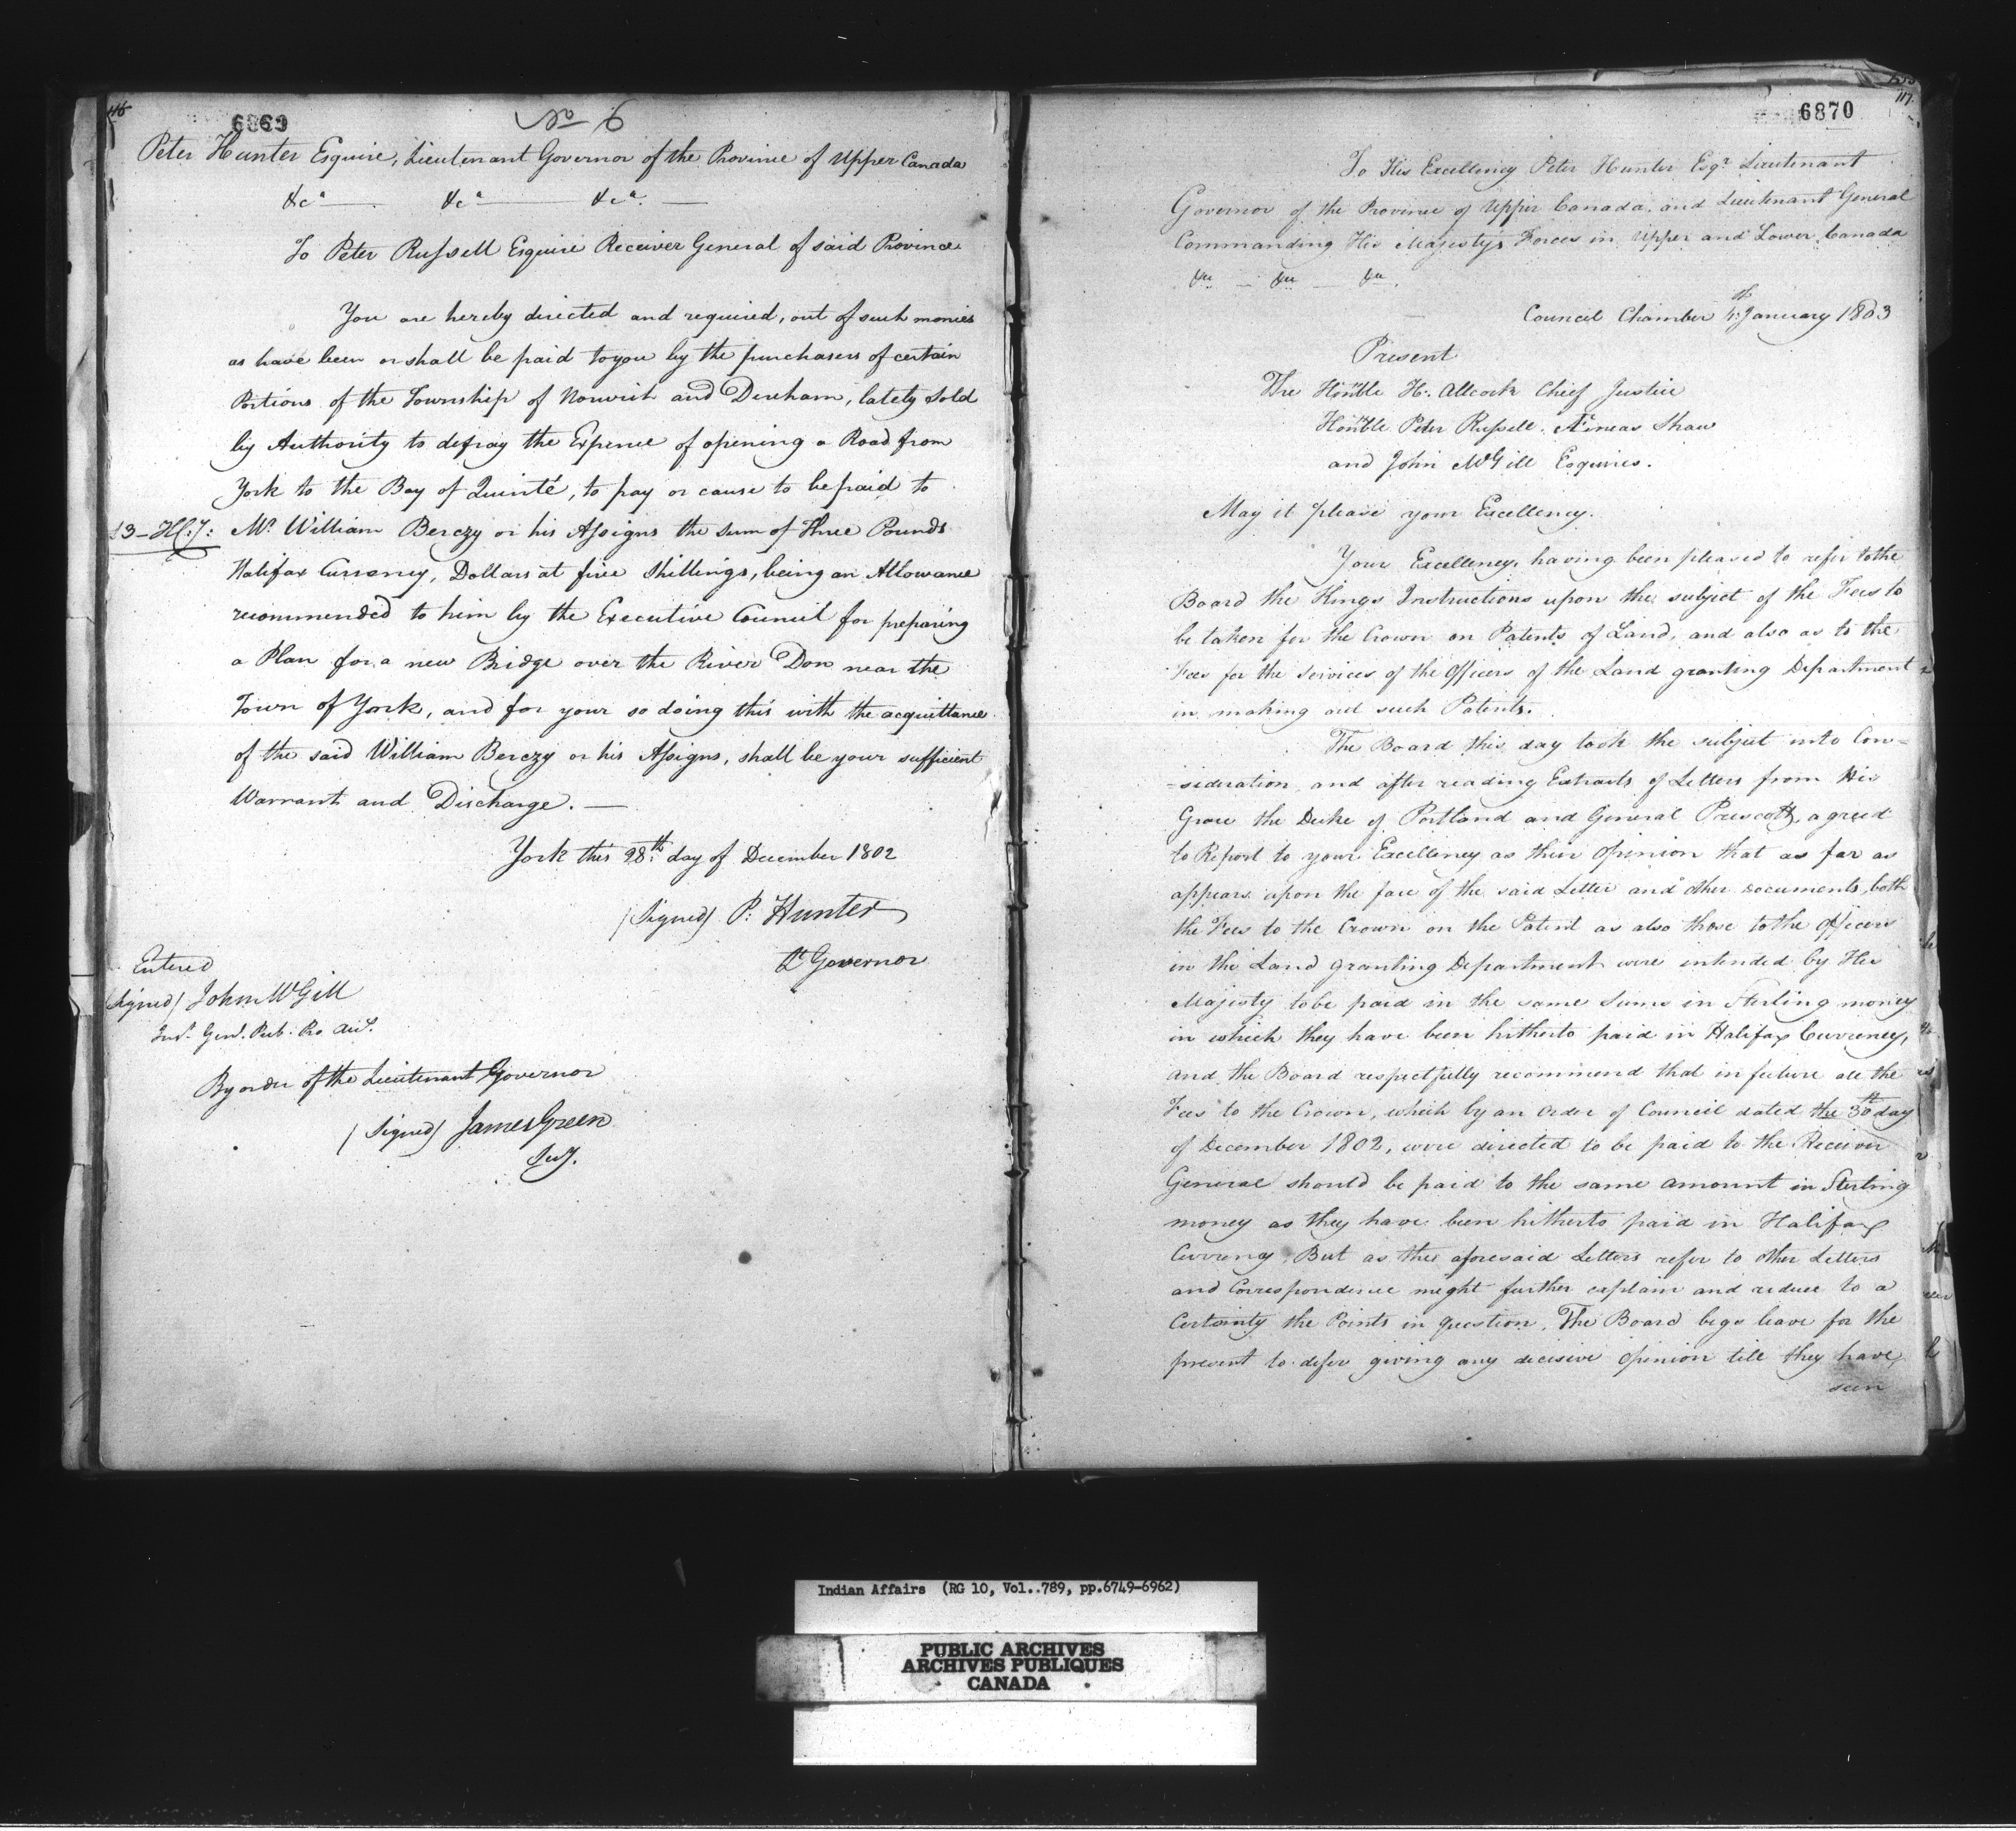 116
6869
No 6
Peter Hunter Esquire, Lieutenant Governor of the Province of Upper Canada
&ca — &ca — &ca. —
To Peter Russell Esquire Receiver General of said Province
You are hereby directed and required, out of such monies
as have been or shall be paid to you by the purchasers of certain
Portions of the Township of Norwich and Dereham, lately sold
by Authority to defray the Expence of opening a Road from
York to the Bay of Quinté, to pay or cause to be paid to
£3 – H.C.y: Mr. William Berczy or his Assigns the sum of Three Pounds
Halifax Currency, Dollars at five Shillings, being an Allowance
recommended to him by the Executive Council for preparing
a Plan for a new Bridge over the River Don near the
Town of York, and for your so doing this with the acquittance
of the said William Berczy or his Assigns, shall be your sufficient
Warrant and Discharge. —
York this 28th day of December 1802
(Signed) P: Hunter
Lt Governor
Entered
(Signed) John McGill
Inr. Genl. Pub. Pro. Acct.
By order of the Lieutenant Governor
(Signed) James Green
Secy.
117.
6870
To His Excellency Peter Hunter Esqr Lieutenant
Governor of the Province of Upper Canada, and Lieutenant General
Commanding His Majesty's Forces in Upper and Lower Canada
&ca — &ca — &ca.
Council Chamber January 1803
Present
The Honble H. Allcock Chief Justice
Honble Peter Russell, Æneas Shaw
and John McGill Esquires.
May it please your Excellency.
Your Excellency, having been pleased to refer to the
Board the Kings Instructions upon the subject of the Fees to
be taken for the Crown on Patents of Land, and also as to the
Fees for the services of the Officers of the Land granting Department
in making out such Patents.
The Board this day took the subject into Con=
=sideration, and after reading Extracts of Letters from His
Grace the Duke of Portland and General Prescott, agreed
to Report to your Excellency as their Opinion that as far as
appears upon the face of the said Letter and other Documents, both
the Fees to the Crown on the Patent as also those to the Officers
in the Land granting Department were intended by His
Majesty to be paid in the same Sums in Sterling money
in which they have been hitherto paid in Halifax Currency,
and the Board respectfully recommend that in future all the
Fees to the Crown, which by an Order of Council dated the 30th day
of December 1802, were directed to be paid to the Receiver
General should be paid to the same amount in Sterling
money as they have been hitherto paid in Halifax
Currency. But as the aforesaid Letters refer to other Letters
and Correspondence might further explain and reduce to a
Certainty the Points in question. The Board begs leave for the
present to defer giving any decisive Opinion till they have
seen
Indian Affairs (RG 10, Vol..789, pp.6749-6962)
PUBLIC ARCHIVES
ARCHIVES PUBLIQUES
CANADA